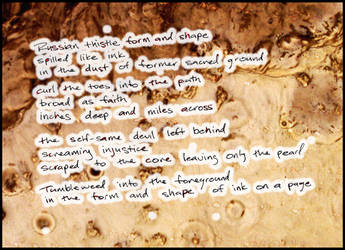 Russian thistle form and shape
spilled like ink
in the dust of former sacred ground
curl the toes into the path
broad as faith
inches deep and miles across
the self-same devil left behind
screaming injustice
scraped to the core leaving only the pearl
Tumbleweed into the foreground
in the form and shape of ink on a page